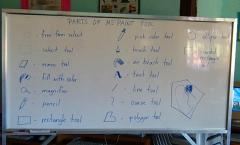 PARTS OF MS PAINT FOR
free form select
select tool
eraser tool
fill with color
magnifier
pencil
rectangle tool
pick color tool
brush tool
air brush tool
text tool
line tool
curve tool
polygon tool
ellipse tool
rounded
rectangle tool